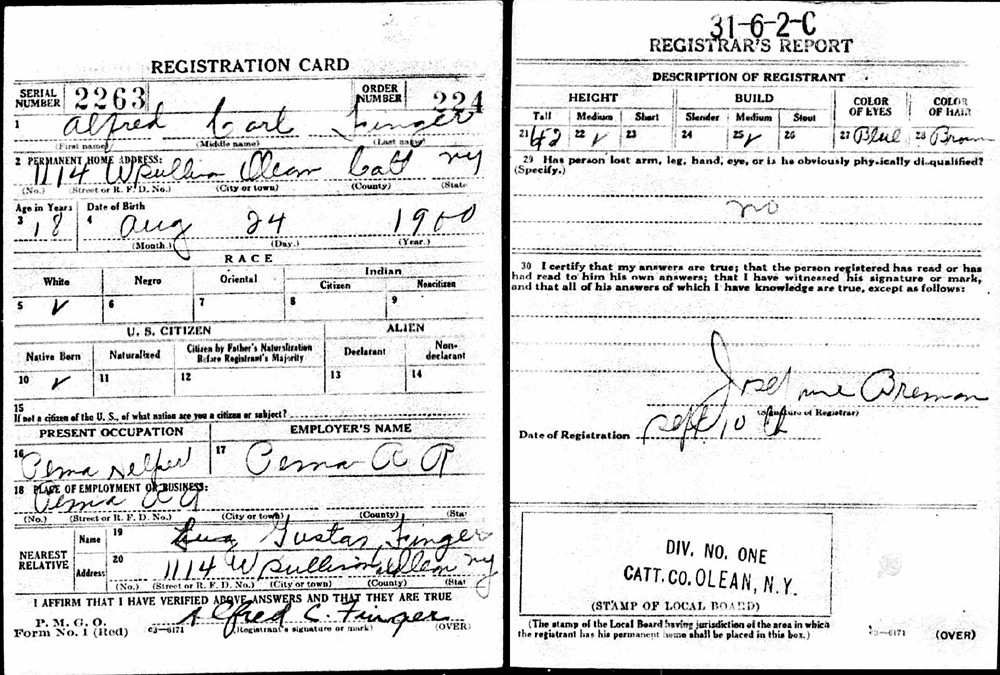 REGISTRATION CARD
SERIAL NUMBER 2263 ORDER NUMBER 224
1 Alfred Carl Finger
(First name) (Middle name) (Last name)
2 PERMANENT HOME ADDRESS:
1114 W Sullivan Olean Catt NY
(No.) (Street or R. F. D. No.) (City or town) (County) (State
Age in Years Date of Birth
3 18 4 Aug 24 1900
(Month.) (Day.) (Year.)
RACE
White Negro Oriental Indian
Citizen Noncitizen
5 ✓ 6 7 8 9
U. S. CITIZEN ALIEN
Native Born Naturalized Citizen by Father's Naturalization Before Registrant's Majority Declarant Non-declarant
10 ✓ 11 12 13 14
15
If not a citizen of the U. S., of what nation are you a citizen or subject?
PRESENT OCCUPATION EMPLOYER'S NAME
16 Penna 17 Penna R R
18 PLACE OF EMPLOYMENT OR BUSINESS:
Penna
(No.) (Street or R. F. D. No.) (City or town) (County) (Sta
NEAREST RELATIVE
Name 19 Gustav Finger
Address 20 1114 W Sullivan Olean NY
(No.) (Street or R. F. D. No.) (City or town) (County) (Stat
I AFFIRM THAT I HAVE VERIFIED ABOVE ANSWERS AND THAT THEY ARE TRUE
P. M. G. O.
Form No. 1 (Red) c3—6171 Alfred C. Finger
(Registrant's signature or mark) (OVER)
31-6-2-C
REGISTRAR'S REPORT
DESCRIPTION OF REGISTRANT
HEIGHT BUILD COLOR OF EYES COLOR OF HAIR
Tall Medium Short Slender Medium Stout
21 22 ✓ 23 24 25 ✓ 26 27 Blue 28 Brown
29 Has person lost arm, leg, hand, eye, or is he obviously physically disqualified?
(Specify.)
no
30 I certify that my answers are true; that the person registered has read or has
had read to him his own answers; that I have witnessed his signature or mark,
and that all of his answers of which I have knowledge are true, except as follows:
Josephine
(Signature of Registrar)
Date of Registration Sept 10
DIV. NO. ONE
CATT. CO. OLEAN, N.Y.
(STAMP OF LOCAL BOARD)
(The stamp of the Local Board having jurisdiction of the area in which
the registrant has his permanent home shall be placed in this box.)
c3—6171 (OVER)